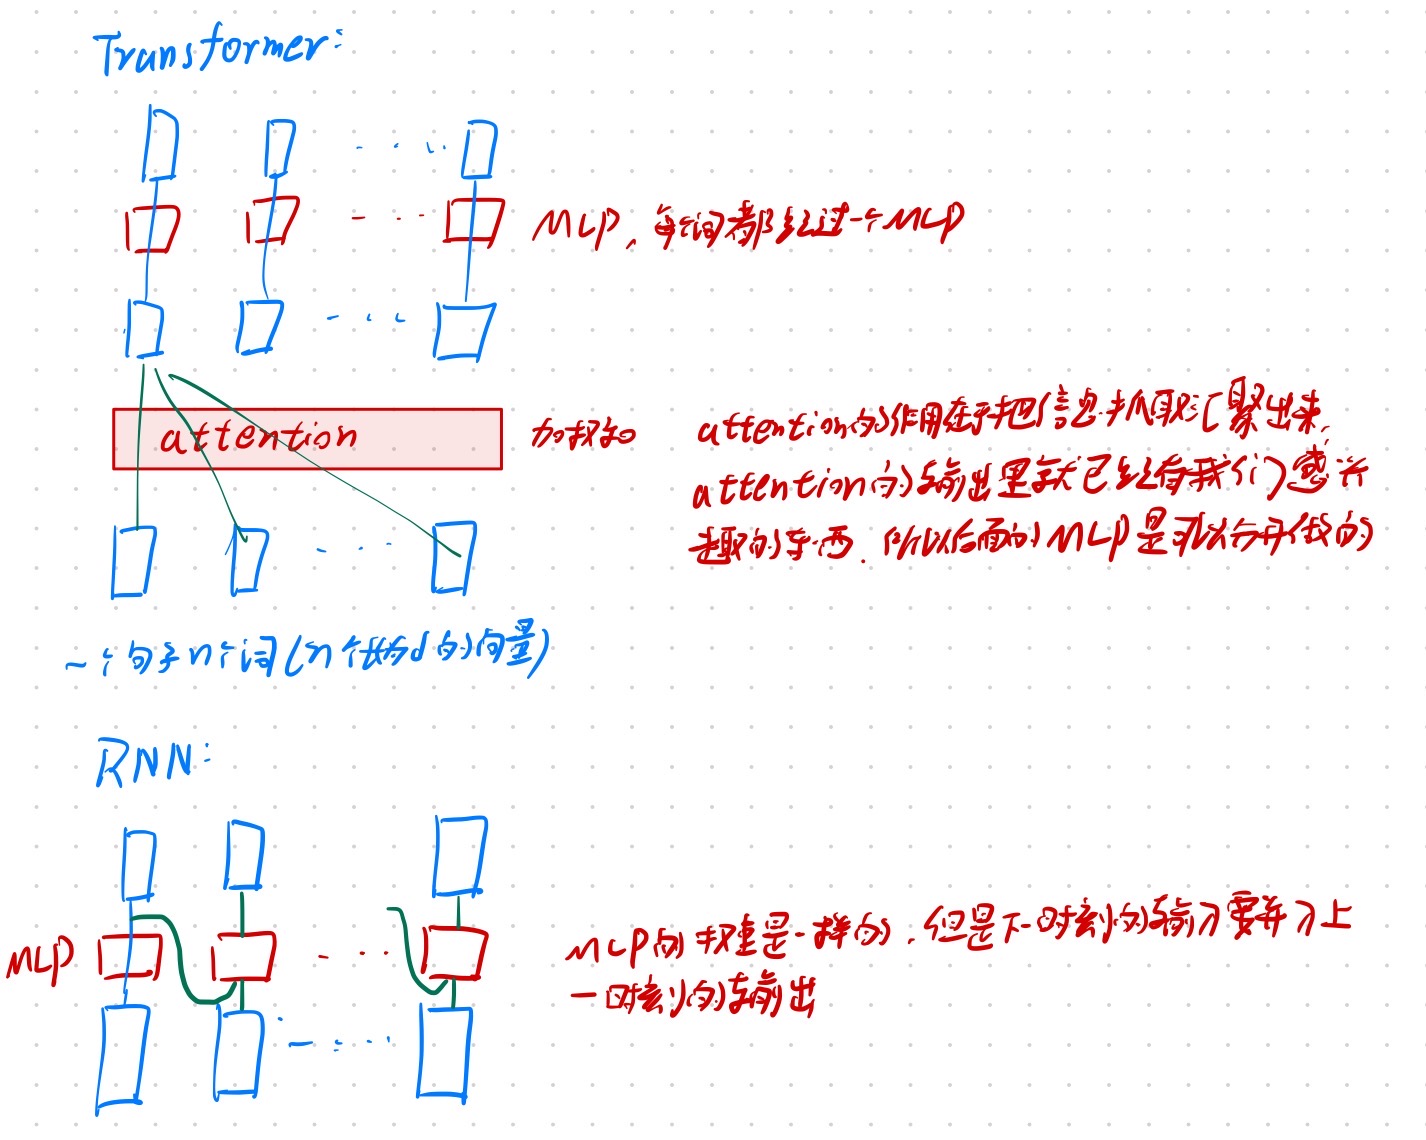 Transformer:
MLP, 每个词都经过一个MLP
attention
加权和
attention的作用在于把信息抓取汇聚出来,
attention的输出里就已经有我们感兴
趣的东西. 所以后面的MLP是可以分开做的
一个句子n个词(n个长为d的向量)
RNN:
MLP
MLP的权重是一样的, 但是下一时刻的输入要并入上
一时刻的输出